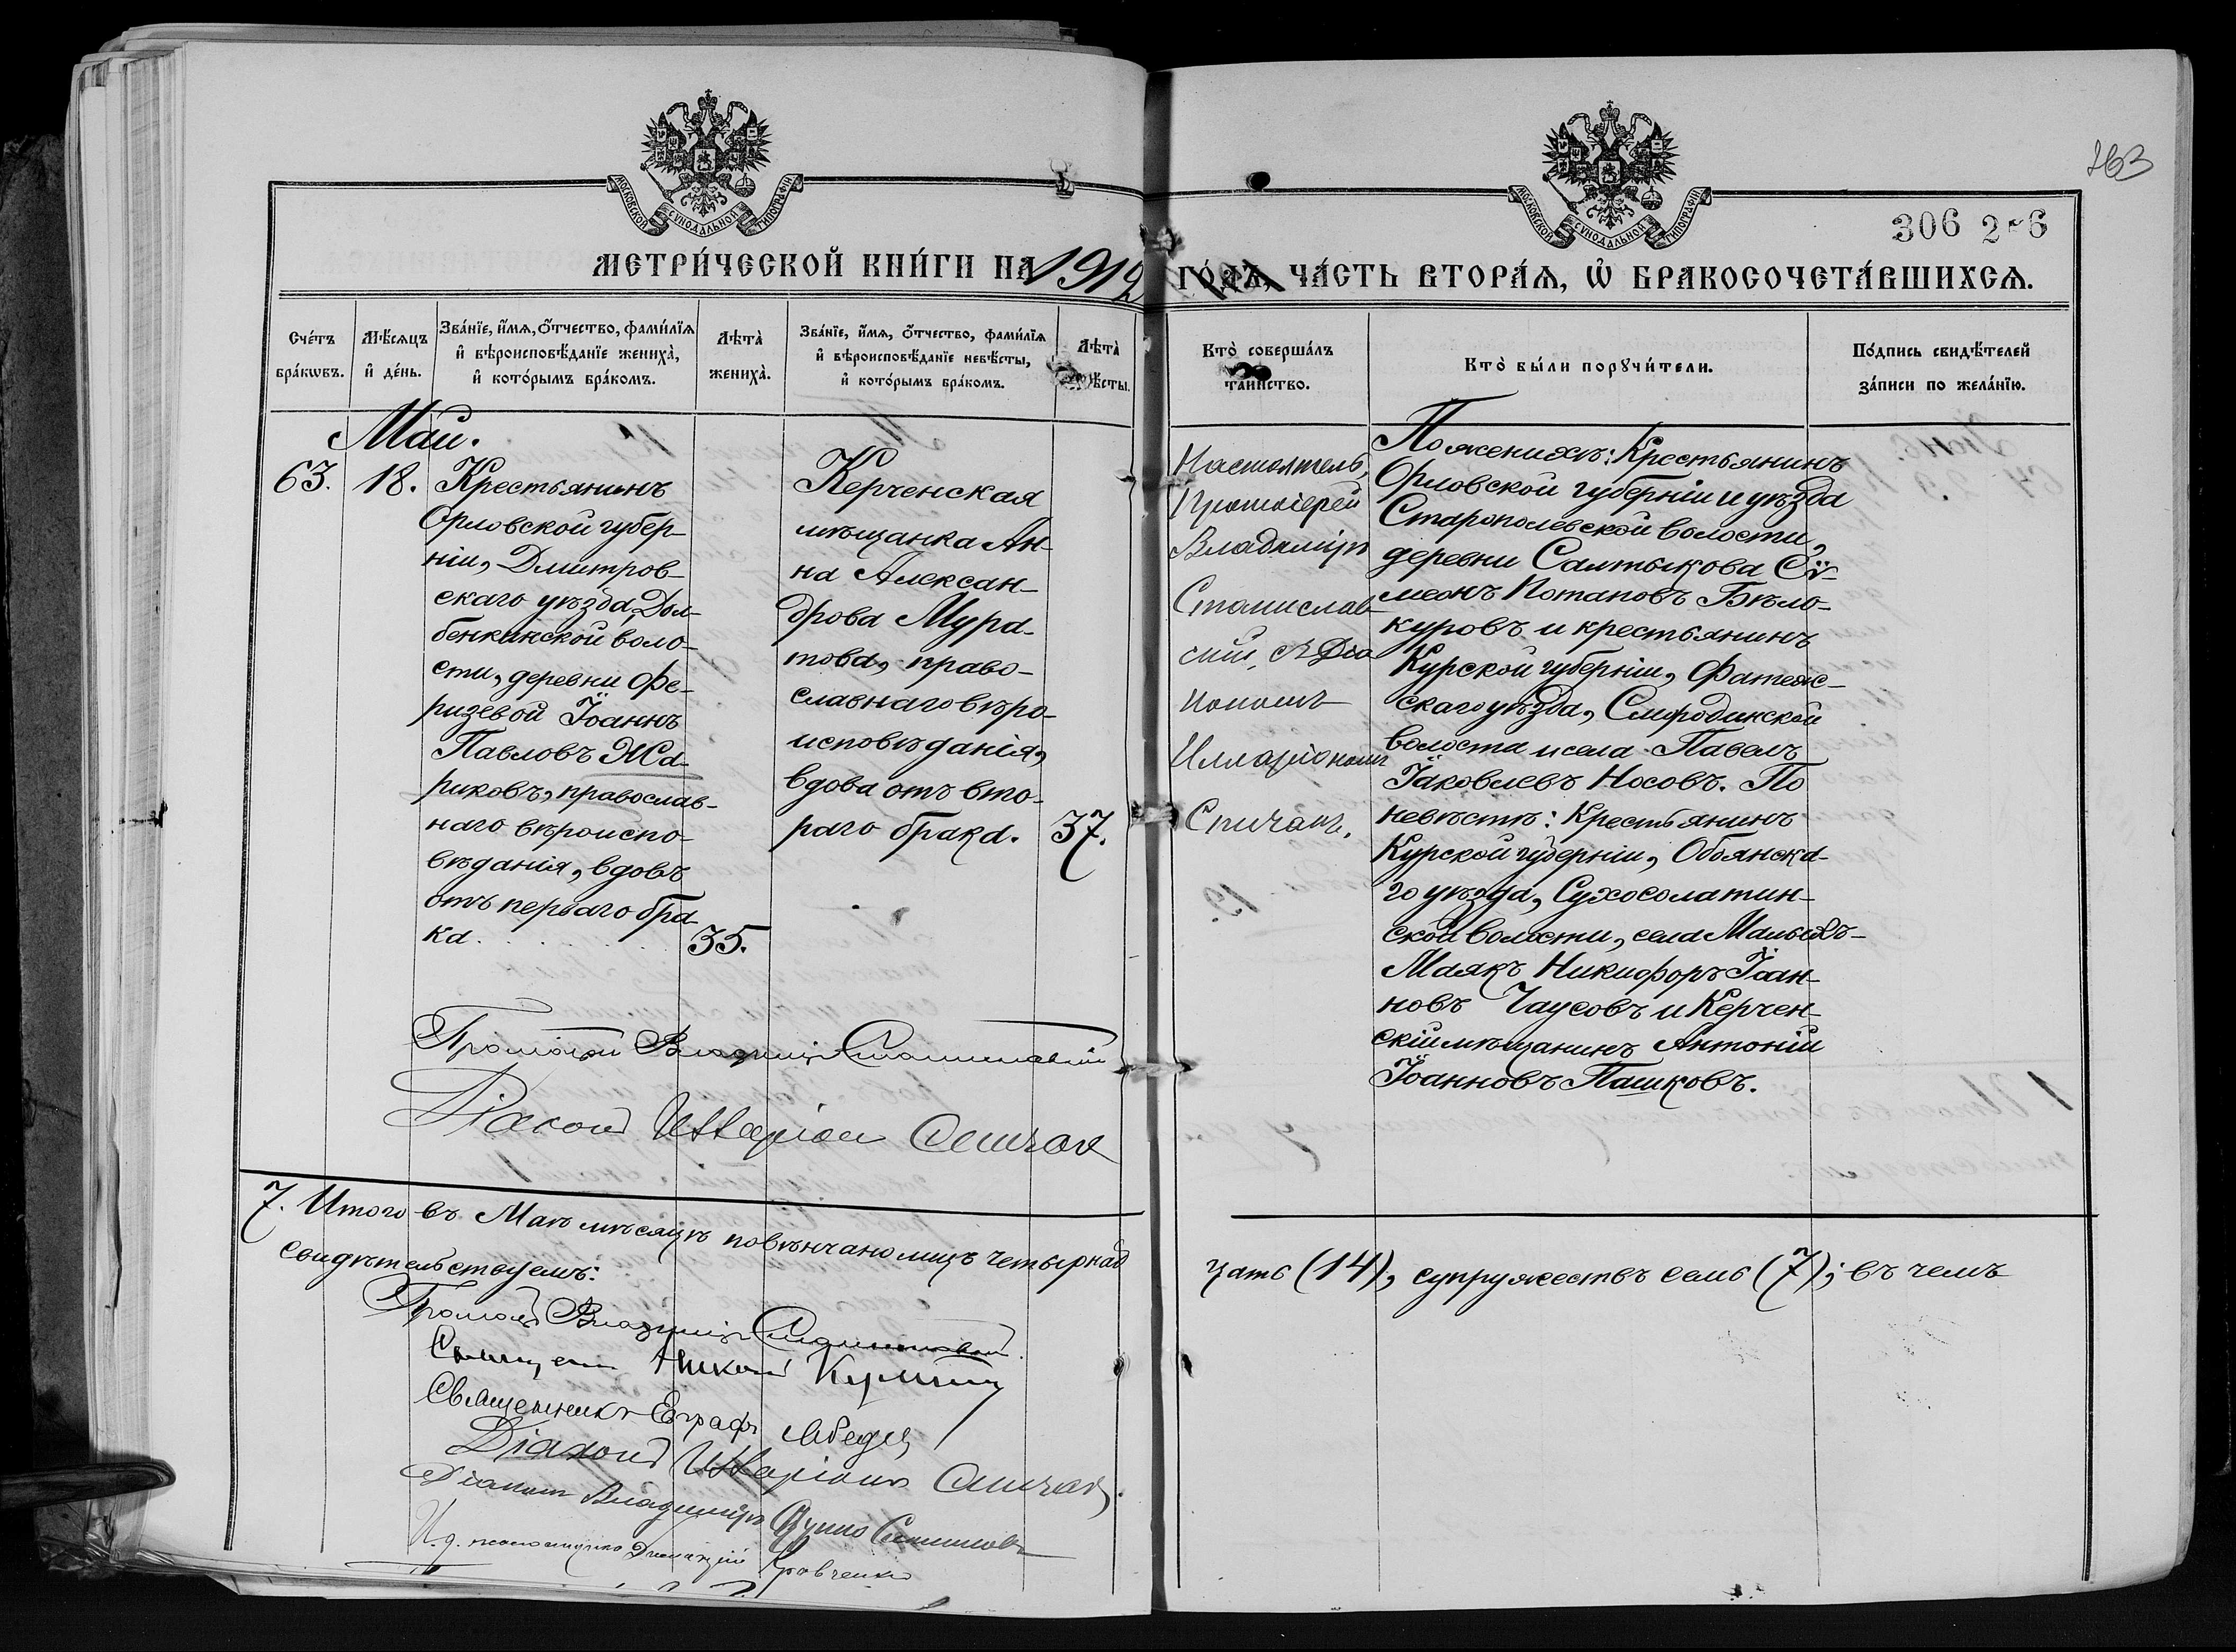 263
306 2 6
МОСКОВСКОЙ СѴНОДАЛЬНОЙ ТИПОГРАФІИ
МОСКОВСКОЙ СѴНОДАЛЬНОЙ ТИПОГРАФІИ
МЕТРИ́ЧЕСКОЙ КНИ́ГИ НА 1912 ГО́ДЪ, ЧА́СТЬ ВТОРА́Ѧ, Ѽ БРАКОСОЧЕТА́ВШИХСѦ.
Сче́тъ
бра́кωвъ.
Мѣ́сяцъ
и҆ де́нь.
Зва́нїе, и҆́мѧ, ѻ҆́тчество, фами́лїѧ
и҆ вѣроисповѣ́данїе жениха̀,
и҆ кото́рымъ бра́комъ.
Лѣта̀
жениха̀.
Зва́нїе, и҆́мѧ, ѻ҆́тчество, фами́лїѧ
и҆ вѣроисповѣ́данїе невѣ́сты,
и҆ кото́рымъ бра́комъ.
Лѣта̀
ѣ́сты.
Кто̀ соверша́лъ
та́инство.
Кто̀ бы́ли порꙋчи́тели.
По́дпись свидѣ́телей
за́писи по жела́нїю.
Май.
63.
18.
Крестьянинъ
Орловской губер-
ніи, Дмитров-
скаго уѣзда, Дол-
бенкинской воло-
сти, деревни Фе-
ризевой Іоаннъ
Павловъ Жа-
риковъ, православ-
наго вѣроиспо-
вѣданія, вдовъ
отъ перваго бра-
ка.
35.
Керченская
мѣщанка Ан-
на Алексан-
дрова Мура-
това, право-
славнаго вѣро-
исповѣданія,
вдова отъ вто-
раго брака.
37.
Настоятель,
Протоіерей
Владиміръ
Станислав-
скій, с Діа
кономъ
Илларіономъ
Спичакъ.
По женихѣ: Крестьянинъ
Орловской губерніи и уѣзда
Старополевской волости,
деревни Салтыкова Сѵ-
меонъ Потаповъ Бѣло-
куровъ и крестьянинъ
Курской губерніи, Фатеж-
скаго уѣзда, Смородинской
волости и села Павелъ
Іаковлевъ Носовъ. По
невѣстѣ: Крестьянинъ
Курской губерніи, Обоянска-
го уѣзда, Сухосолатин-
ской волости, села Малыхъ-
Маякъ Никифоръ Іоан-
новъ Чаусовъ и Керчен-
скій мѣщанинъ Антоній
Іоанновъ Пашковъ.
Протоіерей Владиміръ Станиславскій
Діаконъ Илларіонъ Спичак
7. Итого въ Маѣ мѣсяцѣ повѣнчано лицъ четырнад
цать (14), супружествъ семь (7); въ чемъ
свидѣтельствуемъ:
Протоіер Владиміръ Станиславскій.
Священ Николай
Священникъ Евграфъ Лебедь
Діаконъ Илларіонъ Спичак.
Діаконъ Владиміръ
И. д. псаломщика Кравченко